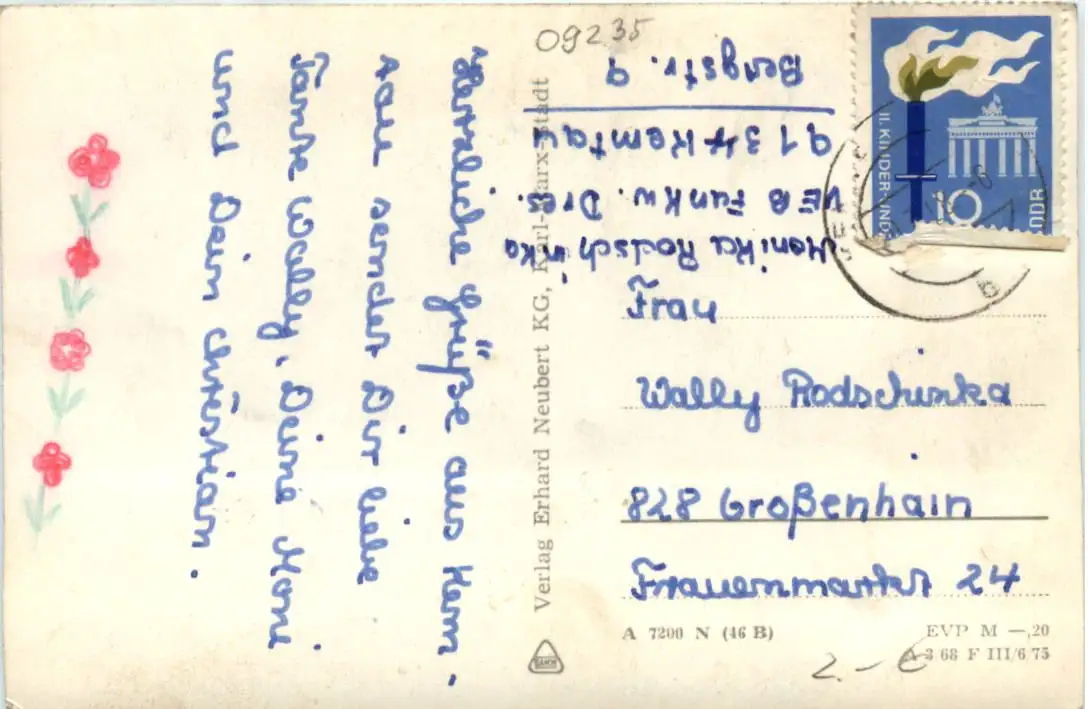 Herzliche Grüße aus Kem-
tau sendet Dir liebe
Tante Wally, Deine Moni
und Dein Christian.
Verlag Erhard Neubert KG, Karl-Marx-Stadt
09235
Monika Rodschinka
VEB Funkw. Dres.
9134 Kemtau
Bergstr. 9
II. KINDER-
10
DDR
Frau
Wally Rodschinka
828 Großenhain
Frauenmarkt 24
A 7200 N (46 B)
EVP M —,20
A 3 68 F III/6 75
2.- €
b